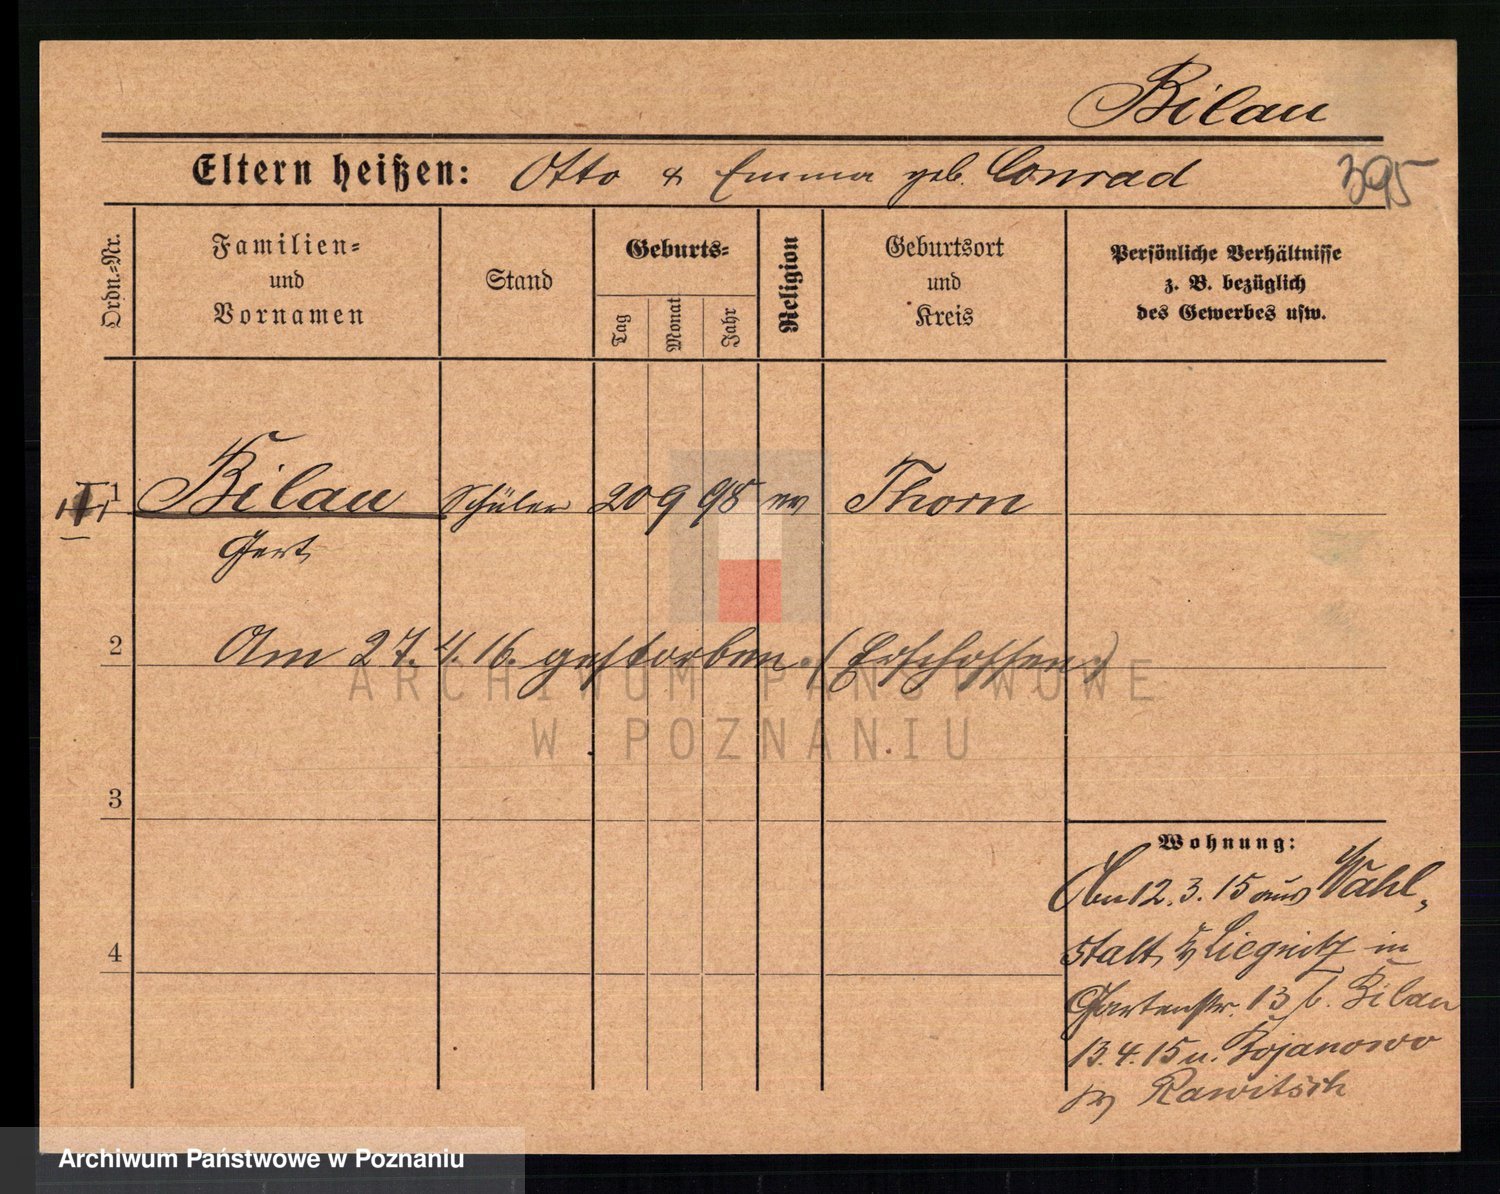 Bilau
Eltern heißen: Otto & Emma geb. Conrad
395
Ordn.-Nr.
Familien-
und
Vornamen
Stand
Geburts-
Tag
Monat
Jahr
Religion
Geburtsort
und
Kreis
Persönliche Verhältnisse
z. B. bezüglich
des Gewerbes usw.
1 Bilau Schüler 20 9 98 ev Thorn
Gert
2 Am 27. 4. 16. gestorben. (Erschossen.)
ARCHIWUM PAŃSTWOWE
W POZNANIU
3
Wohnung:
Am 12. 3. 15 aus Wahl-
statt, Liegnitz in
4
Gartenstr. 13 b. Bilau
13. 4. 15 n. Bojanowo
Rawitsch
Archiwum Państwowe w Poznaniu